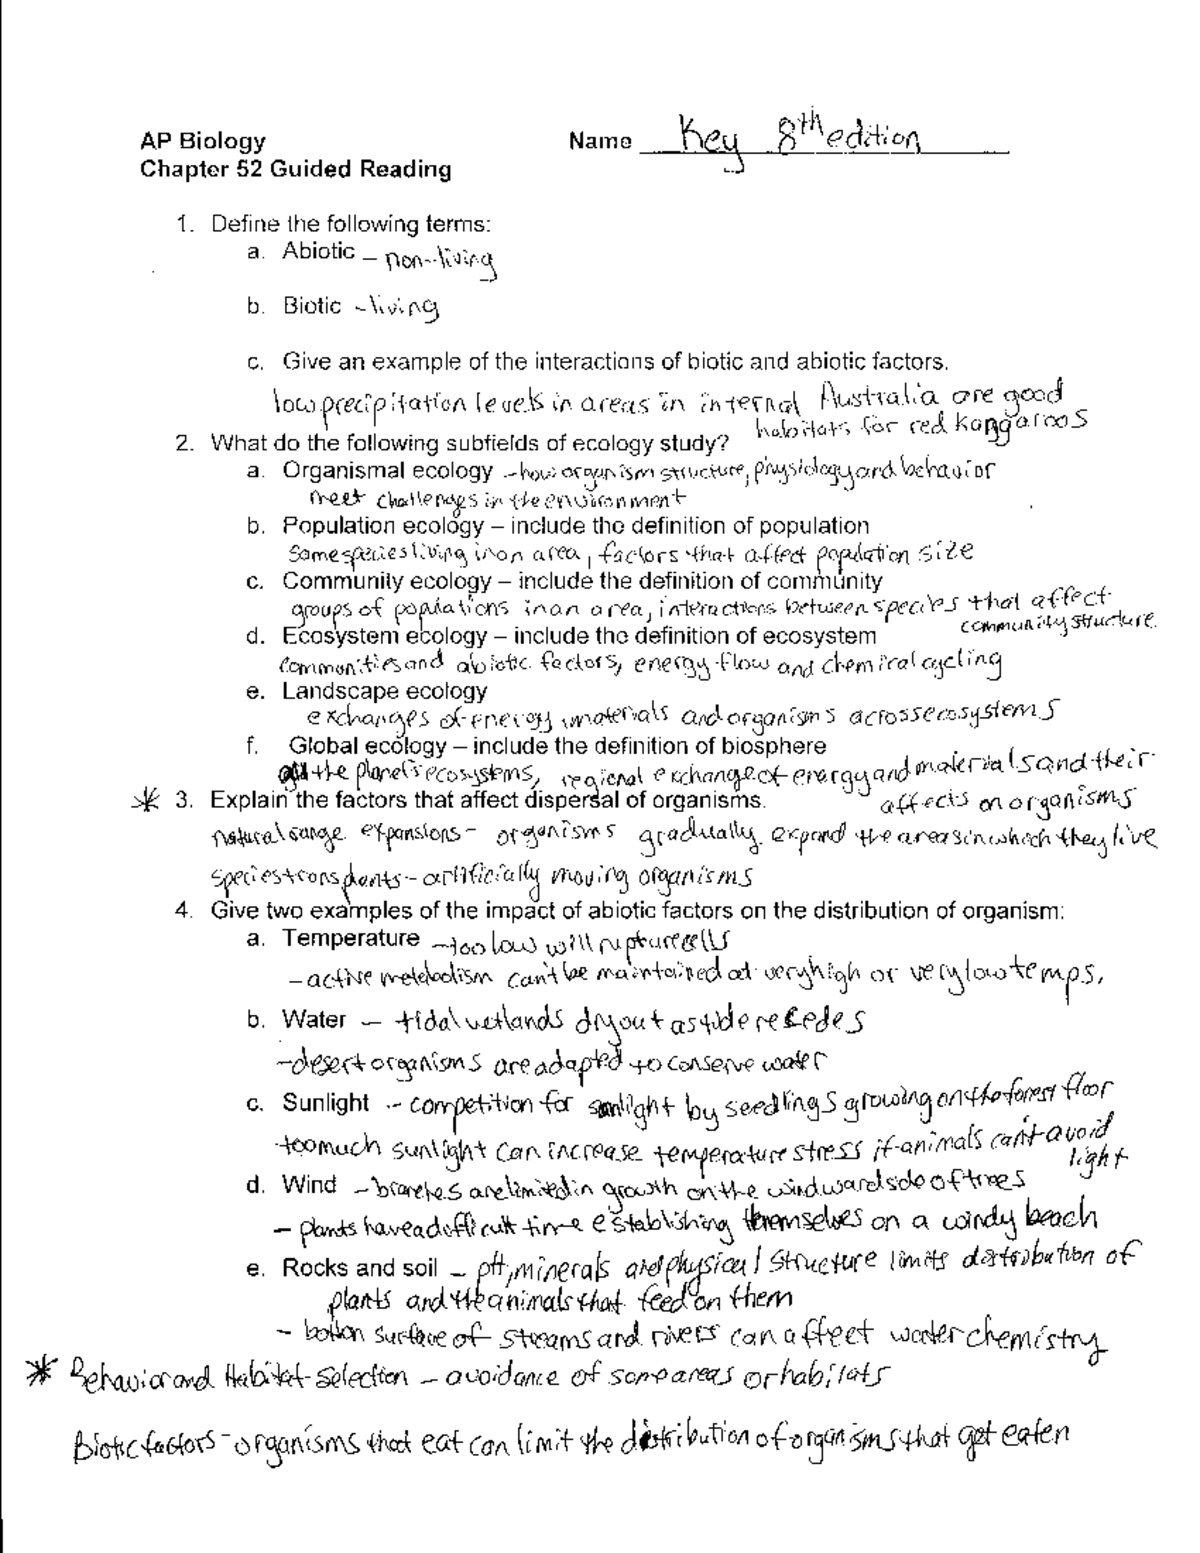 AP Biology Name Key 8th edition
Chapter 52 Guided Reading
1. Define the following terms:
a. Abiotic – non-living
b. Biotic - living
c. Give an example of the interactions of biotic and abiotic factors.
low precipitation levels in areas in internal Australia are good
habitats for red kangaroos
2. What do the following subfields of ecology study?
a. Organismal ecology - how organism structure, physiology and behavior
meet challenges in the environment
b. Population ecology – include the definition of population
same species living in an area, factors that affect population size
c. Community ecology – include the definition of community
groups of populations in an area, interactions between species that affect
community structure.
d. Ecosystem ecology – include the definition of ecosystem
communities and abiotic factors, energy flow and chemical cycling
e. Landscape ecology
exchanges of energy, materials and organisms across ecosystems
f. Global ecology – include the definition of biosphere
all the planet's ecosystems, regional exchange of energy and materials and their
affects on organisms
* 3. Explain the factors that affect dispersal of organisms.
natural range expansions - organisms gradually expand the areas in which they live
species transplants - artificially moving organisms
4. Give two examples of the impact of abiotic factors on the distribution of organism:
a. Temperature - too low will rupture cells
- active metabolism can't be maintained at very high or very low temps.
b. Water - tidal wetlands dry out as tide recedes
- desert organisms are adapted to conserve water
c. Sunlight - competition for sunlight by seedlings growing on the forest floor
too much sunlight can increase temperature stress if animals can't avoid
light
d. Wind - branches are limited in growth on the windward side of trees
- plants have a difficult time establishing themselves on a windy beach
e. Rocks and soil - pH, minerals and physical structure limits distribution of
plants and the animals that feed on them
- bottom surface of streams and rivers can affect water chemistry
* Behavior and Habitat Selection - avoidance of some areas or habitats
Biotic factors - organisms that eat can limit the distribution of organisms that get eaten